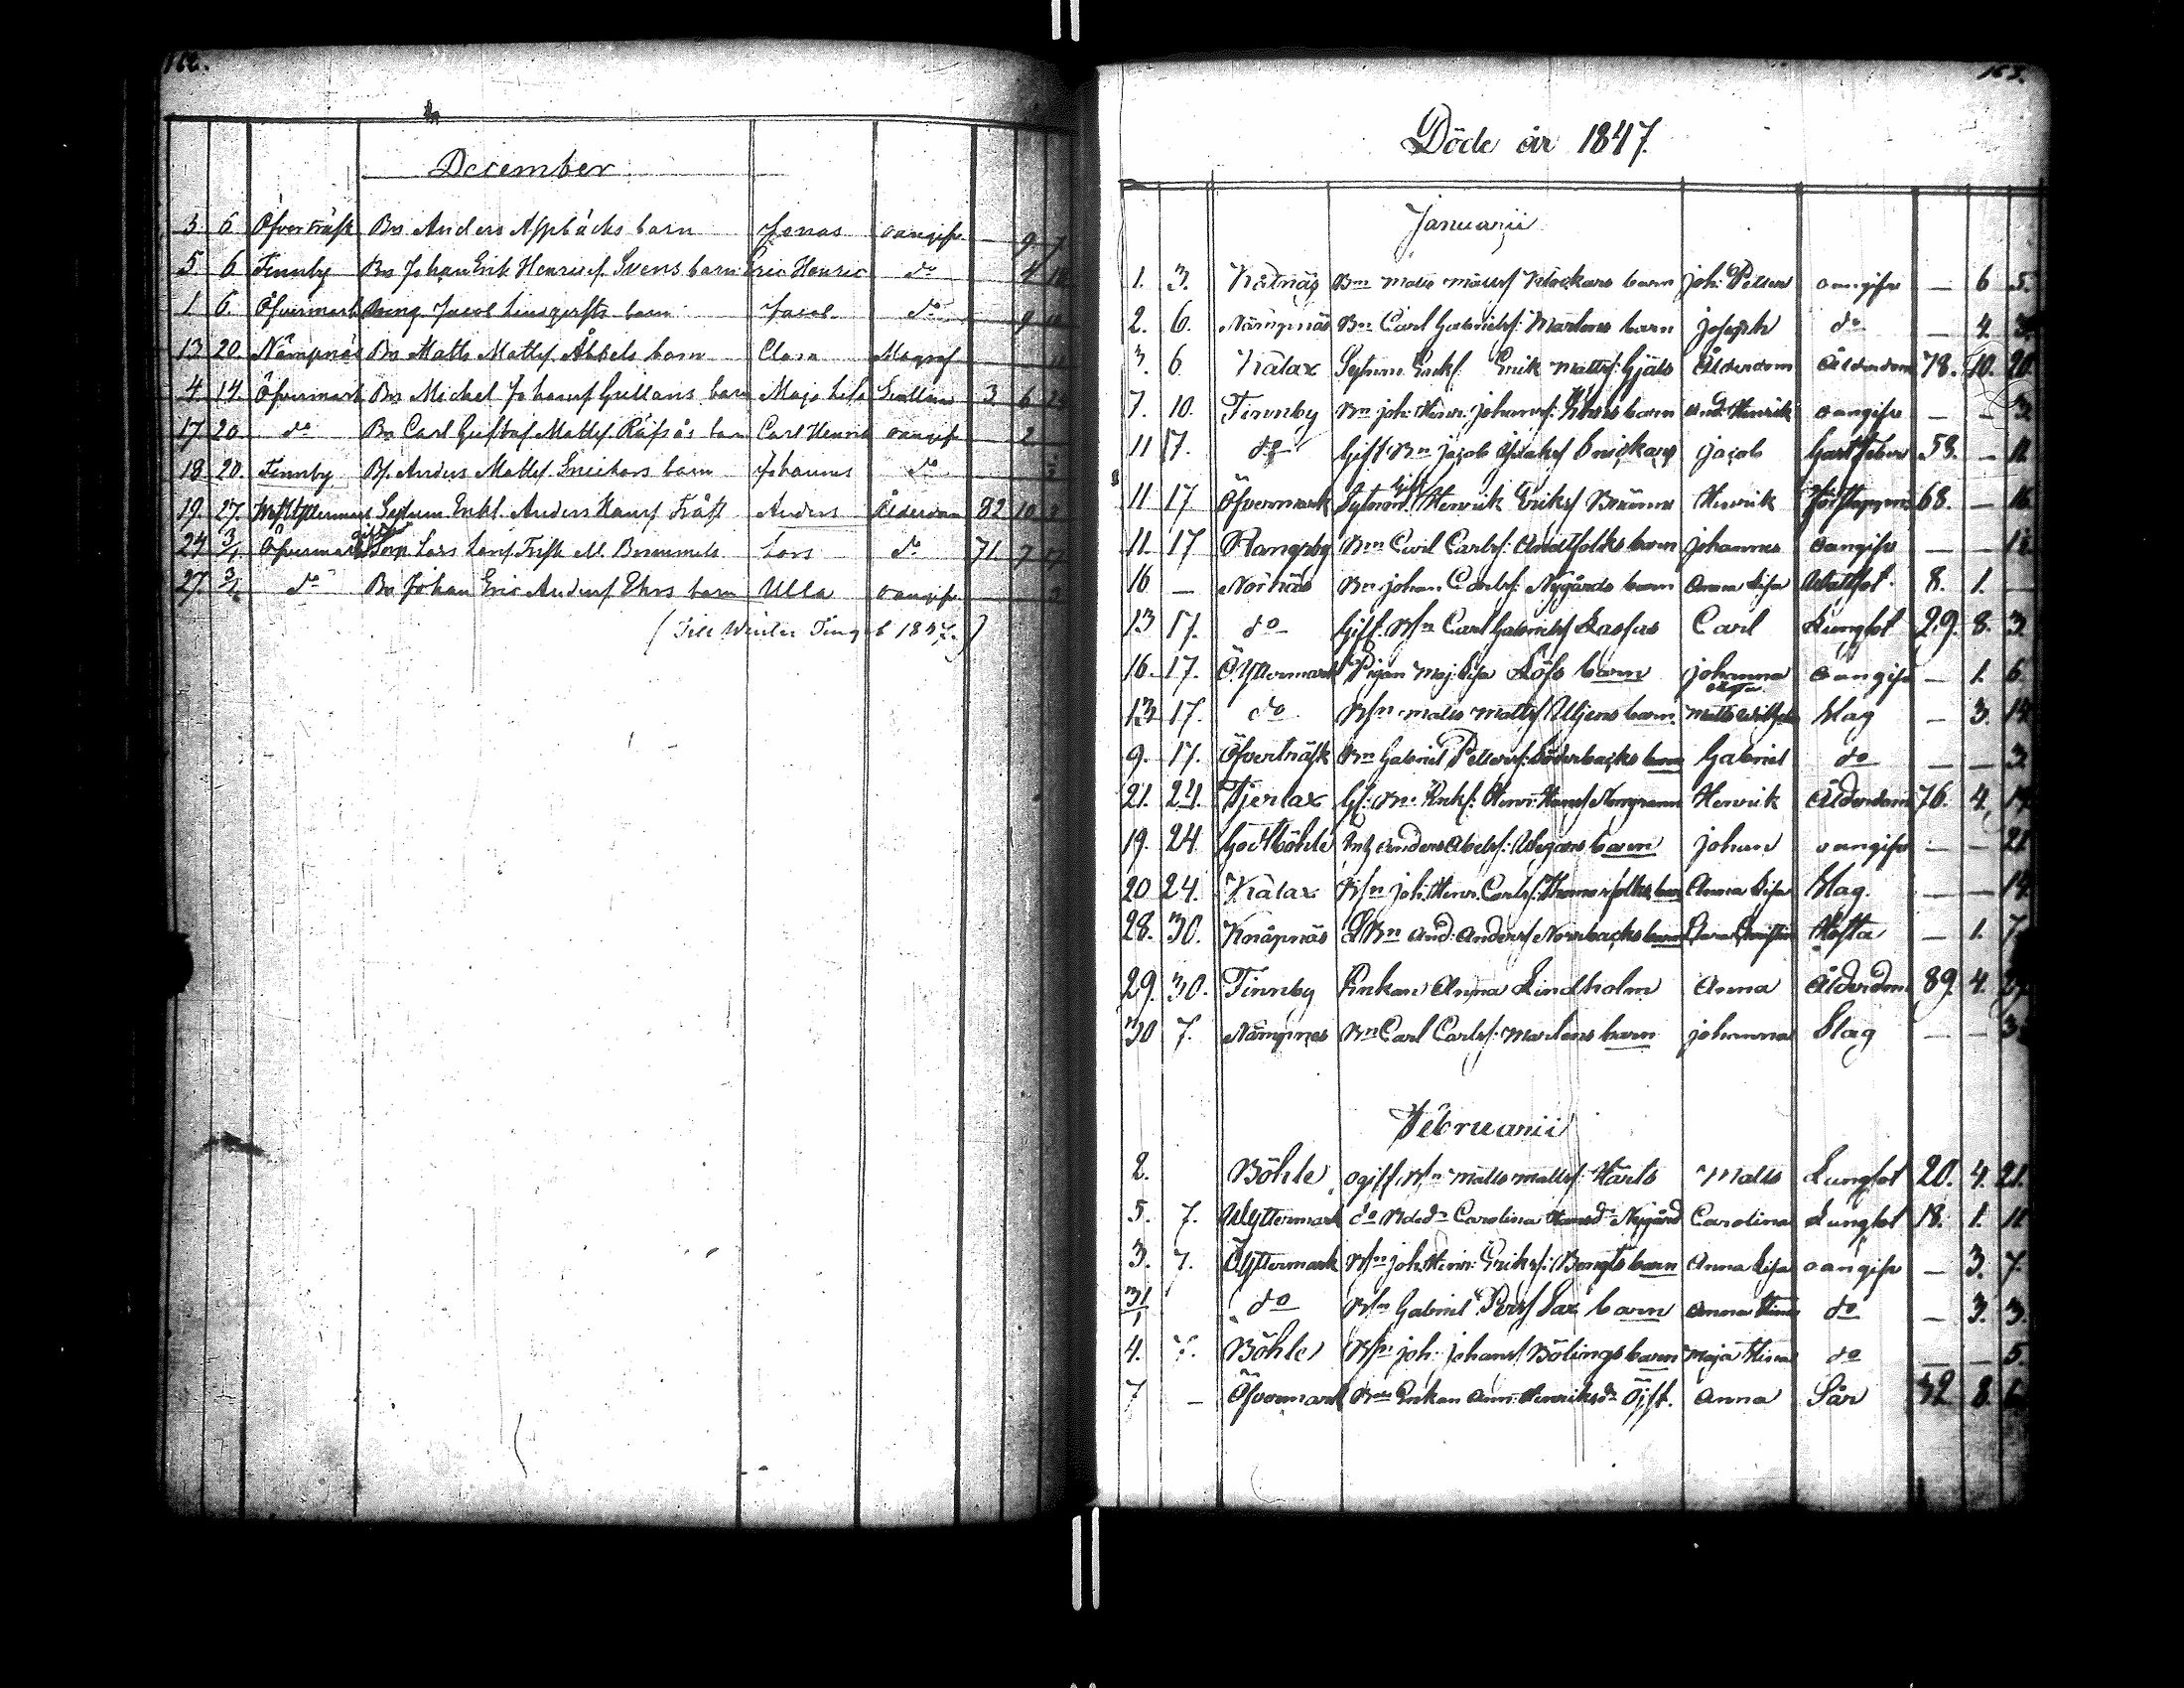 December
3. 6. Öfverträsk Bn Anders Appbäcks barn Jonas oangifv. — 9 7
5. 6 Finnby Bn Johan Erik Henricss. Svens barn Eric Henric do 4
1. 6. Öfvermark Jacob barn Jacob do 9
13 20. Nämpnäs Bn Matts Mattss. Åbbels barn Clara Magref
4. 14. Öfvermark Bn Michel Johanss Grellans barn Maja Lisa 3 6
17 20 do Bn Carl Gustaf Mattss Räfsås barn Carl Henrik oangif 2
18. 20. Finnby Bn Anders Mattss Snickars barn Johannes do
19. 27. Anders Hanss Träsk Anders Ålderdom 82 10
24 3/1 Öfvermark Lars Larss Frisk Lars do 71. 7 17
27. 3/1 do Bn Johan Eric Anderss Ehrs barn Ulla oangifv
(Till Winter Tinget 1847.)
163.
Döde år 1847.
Januarii
1. 3. Kåtnäs Bn Matts Mattss Klockars barn Joh: Petter oangifv — 6 5.
2. 6. Nämpnäs Bn Carl Gabrielss: Martens barn Joseph do — 4.
3. 6 Kalax Sytnm Enkl. Erik Mattss: Gjäls Ålderdom Ålderdom 78. 10. 20.
7. 10. Finnby Bn Joh: Henr: Johanss: barn And: Henrik oangifv — — 3.
11 17. do Giff. Bn Jacob Snickars Jacob 58. — 11
11 17 Öfvermark Sytnm Henrik Erikss Brännn Henrik 68. — 16
11 17 Rangsby Bn Carl Carlss: Andtfolks barn Johannes oangifv — —
16 — Norrnäs Bn Johan Carlss: Nygårds barn Anna Lisa Wattsot. 8. 1. —
13 17. do Giff. Bn Carl Gabrielss Lassus Carl Lungsot 29. 8. 3
16. 17. Ö.Yttermark Pigan Maj: Lisa Löfs barn Johanna oangifv — 1. 6
13 17. do Bn Matts Mattss Uljens barn Matts Wilhelm Slag — 3. 14
9. 17. Öfverträsk Bn Gabriel Petterss: Söderbacks barn Gabriel do — — 3
21. 24. Tjerlax Gf: Bn Enkl: Henr: Hanss Norrgrann Henrik Ålderdom 76. 4.
19. 24 Gottböhle Anders Abelss: barn Johan oangifv — — 21
20 24. Kalax Bn Joh: Henr: Carlss: Thomasfolks barn Anna Lisa Slag. — — 14
28. 30. Knåpnäs LBn And: Anderss Norrbacks barn Hosta — 1. 7
29. 30. Finnby Enkan Anna Lindholm Anna Ålderdom 89. 4.
30 7. Nämpnäs Bn Carl Carlss: Martens barn Johanna Slag — — 3.
Februarii
2. Böhle ogiff Bn Matts Mattss: Härts Matts Lungsot 20. 4. 21.
5. 7. W.Yttermark do Carolina Hansdr Nygård Carolina Lungsot 18. 1. 11
3. 7. Ö.Yttermark Bn Joh: Henr: Erikss: Bengts barn Anna Lisa oangifv — 3. 7.
31/1 do Bn Gabriel Perss Sax barn Anna do — 3. 3.
4. 7. Böhle Bn Joh: Johanss Bölings barn Maja do — — 5.
7 — Öfvermark Enkan Ann: Henriksdr Öjst. Anna Sår 8.